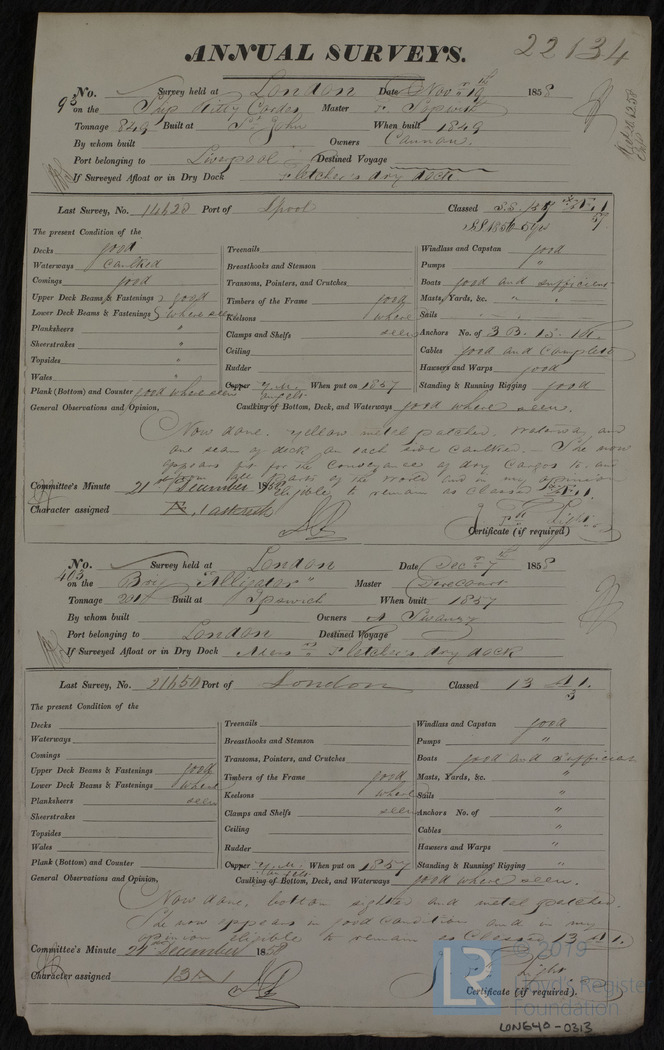 ANNUAL SURVEYS.
22134
No. 93 Survey held at London Date Nov 19th 1858
on the Ship Kitty Cordes Master
Tonnage 849 Built at St. John When built 1849
By whom built Owners Cannon
Port belonging to Liverpool Destined Voyage
If Surveyed Afloat or in Dry Dock Fletcher's dry dock.
Last Survey, No. 14623 Port of Lpool Classed
The present Condition of the
Decks good Treenails Windlass and Capstan good
Waterways Caulked Breasthooks and Stemson Pumps "
Comings good Transoms, Pointers, and Crutches Boats good and sufficient
Upper Deck Beams & Fastenings good Timbers of the Frame good Masts, Yards, &c. " "
Lower Deck Beams & Fastenings where seen Keelsons where Sails
Planksheers " Clamps and Shelfs seen Anchors No. of 3 B. 1 S. 1 K.
Sheerstrakes " Ceiling Cables good and complete
Topsides " Rudder Hawsers and Warps good
Wales " Copper Y.M. When put on 1857 Standing & Running Rigging good
Plank (Bottom) and Counter good where seen
General Observations and Opinion, Caulking of Bottom, Deck, and Waterways good where seen.
Now done. yellow metal patched. Waterway and
one seam of deck on each side caulked. - She now
appears fit for the conveyance of dry Cargos to and
from all parts of the World and in my opinion
eligible to remain as Classed
Committee's Minute 21st December 1858
Character assigned
Certificate (if required)
No. 403 Survey held at London Date Dec 7th 1858
on the Brig "Alligator" Master
Tonnage Built at Ipswich When built 1857
By whom built Owners
Port belonging to London Destined Voyage
If Surveyed Afloat or in Dry Dock Fletcher's dry dock
Last Survey, No. Port of London Classed 13 A1.
The present Condition of the
Decks Treenails Windlass and Capstan good
Waterways Breasthooks and Stemson Pumps "
Comings Transoms, Pointers, and Crutches Boats good and sufficient
Upper Deck Beams & Fastenings good Timbers of the Frame good Masts, Yards, &c. "
Lower Deck Beams & Fastenings where Keelsons where Sails "
Planksheers seen Clamps and Shelfs seen Anchors No. of "
Sheerstrakes Ceiling Cables "
Topsides Rudder Hawsers and Warps "
Wales Copper Y.M. When put on 1857 Standing & Running Rigging "
Plank (Bottom) and Counter
General Observations and Opinion, Caulking of Bottom, Deck, and Waterways good where seen.
Now done, bottom sighted and metal patched.
She now appears in good condition and in my
opinion eligible to remain as Classed 13 A1.
Committee's Minute 21st December 1858
Character assigned 13 A 1
Certificate (if required).
© 2019
Lloyd's Register
Foundation
LR
LON640-0313